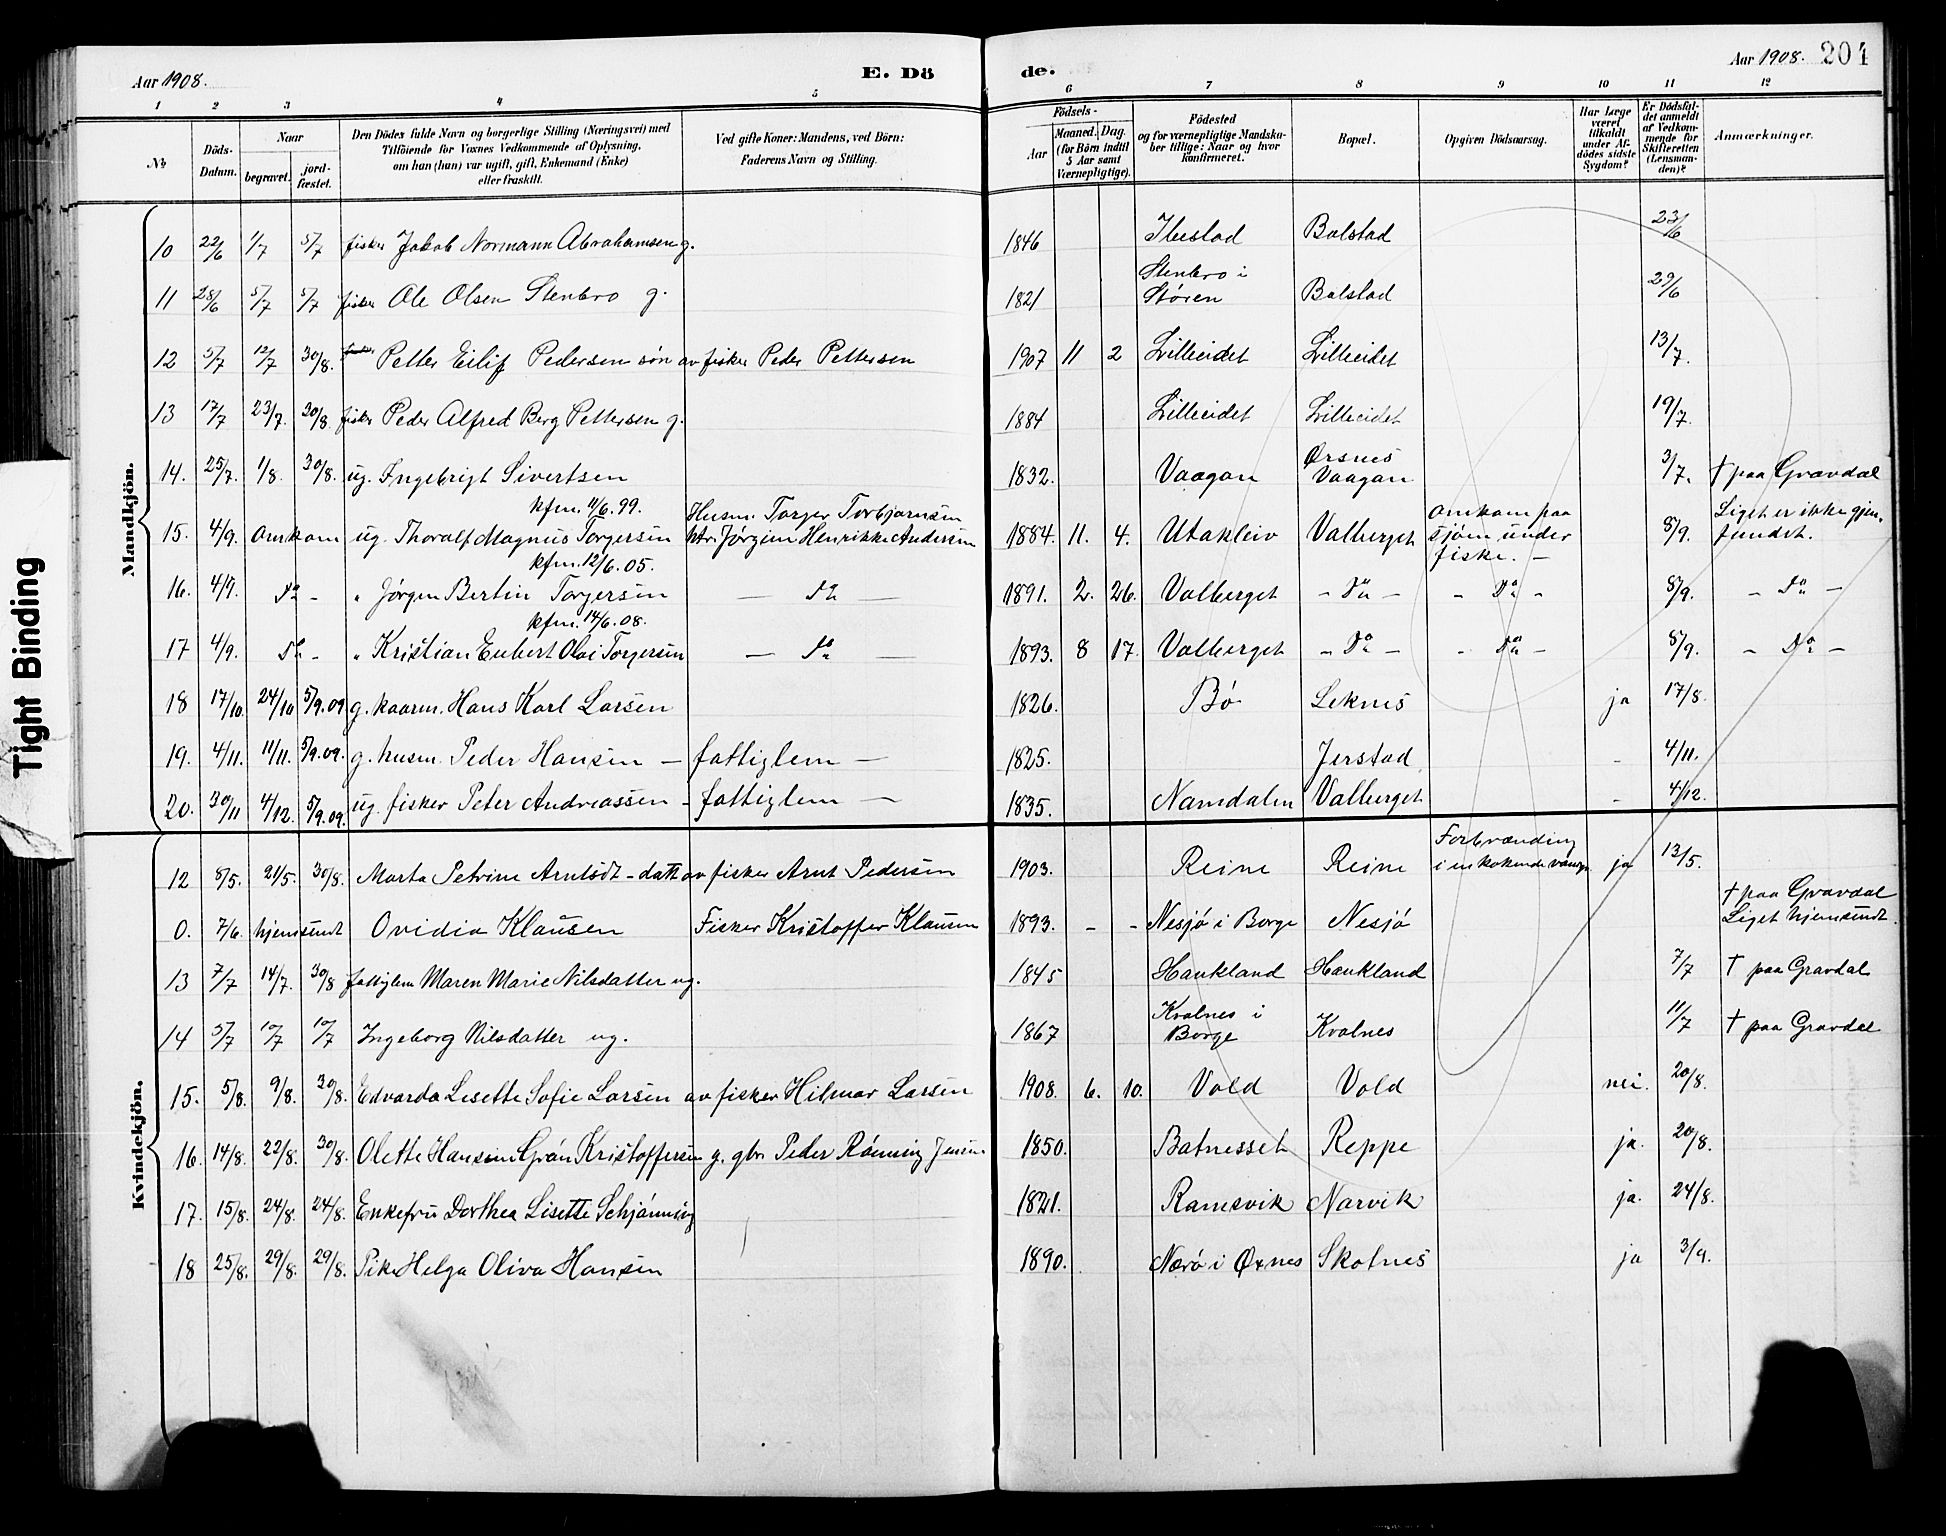 Aar 1908. E. Dö de. Aar 1908. 204
1 2 3 4 5 6 7 8 9 10 11 12
No Döds-Datum. Naar begravet. jord-fæstet. Den Dödes fulde Navn og borgerlige Stilling (Næringsvei) med Tilföiende for Voxnes Vedkommende af Oplysning, om han (hun) var ugift, gift, Enkemand (Enke) eller fraskilt. Ved gifte Koner: Mandens, ved Börn: Faderens Navn og Stilling. Födsels- Aar Maaned. Dag. (for Börn indtil 5 Aar samt Værnepligtige). Födested og for værnepligtige Mandska-ber tillige: Naar og hvor konfirmeret. Bopæl. Opgiven Dödsaarsag. Har Læge været tilkaldt under Af-dödes sidste Sygdom? Er Dödsfal-det anmeldt af Vedkom-mende for Skifteretten (Lensman-den)? Anmærkninger.
Mandkjön.
10 22/6 1/7 5/7 fisker Jakob Normann Abrahamsen g. 1846 Ibestad Balstad 23/6
11 28/6 5/7 5/7 fisker Ole Olsen Stenbro g. 1821 Stenbro i Støren Balstad 29/6
12 5/7 12/7 30/8. fisker Petter Eilif Pedersen søn av fisker Peder Pettersen 1907 11 2 Lilleeidet Lilleeidet 13/7.
13 17/7 23/7. 30/8. fisker Peder Alfred Berg Pettersen g. 1884 Lilleeidet Lilleeidet 19/7.
14. 25/7. 1/8. 30/8. ug. Ingebrigt Sivertsen 1832. Vaagan Ørsnes Vaagan 3/7. † paa Gravdal
kfm. 11/6. 99.
15. 4/9. Omkom ug. Thoralf Magnus Torgersen Husm. Torger Torbjørnsen Htr. Jørgine Henrikke Andersen 1884. 11. 4. Utakleiv Valberget Omkom paa sjøen under fiske. – 8/9. Liget er ikke gjen-fundet.
kfm. 12/6. 05.
16. 4/9. Do - " Jørgen Bertin Torgersen — Do — 1891. 2. 26. Valberget – Do – – Do – 8/9. – Do –
kfm. 14/6. 08.
17 4/9. Do - " Kristian Eubert Olai Torgersen — Do — 1893. 8 17. Valberget – Do – – Do – 8/9. – Do –
18 17/10. 24/10 5/9.09 g. kaarm. Hans Karl Larsen 1826. Bø Leknes ja 17/8.
19. 4/11. 11/11. 5/9.09. g. husm. Peder Hansen – fattiglem – 1825. Jerstad - 4/11.
20. 30/11 4/12. 5/9.09. ug. fisker Peter Andreassen – fattiglem – 1835. Namdalen Valberget - 4/12.
Kvindekjön.
12 8/5. 21/5. 30/8. Marta Petrine Arntsdt – datt av fisker Arnt Pedersen 1903. Reine Reine Forbrænding i en kokende ja 13/5.
0. 7/6. hjemsendt Ovidia Klausen Fisker Kristoffer Klausen 1893. - - Nesjø i Borge Nesjø † paa Gravdal Liget hjemsendt.
13 7/7 14/7. 30/8 fattiglem Maren Marie Nilsdatter ug. 1845 Haukland Haukland 7/7 † paa Gravdal
14 5/7 10/7 10/7 Ingeborg Nilsdatter ug. 1867 Kvalnes i Borge Kvalnes 11/7 † paa Gravdal
15. 5/8. 9/8. 30/8. Edvarda Lisette Sofie Larsen av fisker Hilmar Larsen 1908. 6. 10. Vold Vold nei. 20/8.
16. 14/8. 22/8. 30/8. Olette Hansine Grøn Kristoffersen g. gbr. Peder Rønning Jensen 1850. Batnesset Reppe ja. 20/8.
17. 15/8. 24/8. 24/8. Enkefru Dorthea Lisette Schjønning 1821. Ramsvik Narvik ja. 24/8.
18 25/8. 29/8. 29/8. Pike Helga Oliva Hansen 1890. Nærø i Øxnes Skotnes ja 3/9.
Tight Binding